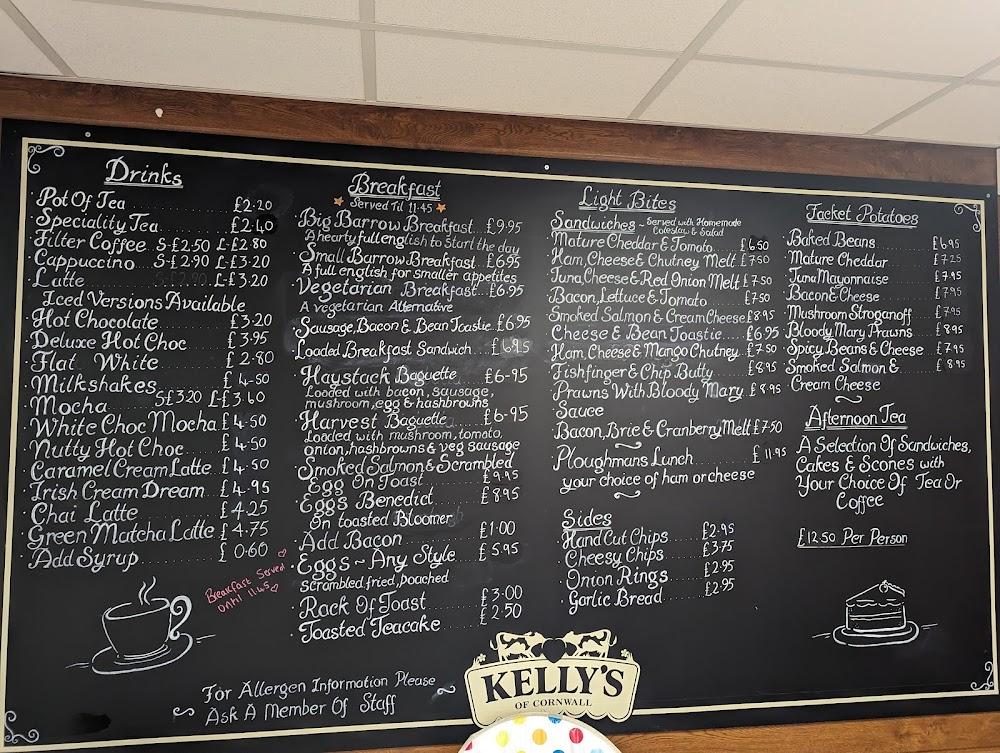 Drinks
Pot Of Tea £2.20
Speciality Tea £2.40
Filter Coffee S-£2.50 L-£2.80
Cappuccino S-£2.90 L-£3.20
Latte S-£2.90 L-£3.20
Iced Versions Available
Hot Chocolate £3.20
Deluxe Hot Choc £3.95
Flat White £2.80
Milkshakes £4-50
Mocha S£3.20 L-£3.60
White Choc Mocha £4.50
Nutty Hot Choc £4.50
Caramel Cream Latte £4.50
Irish Cream Dream £4.95
Chai Latte £4.25
Green Matcha Latte £4.75
Add Syrup £0.60
Breakfast Served
Until 11.45
Breakfast
Served Til 11.45
Big Barrow Breakfast £9.95
A hearty full english to start the day
Small Barrow Breakfast £6.95
A full english for smaller appetites
Vegetarian Breakfast £6.95
A vegetarian Alternative
Sausage, Bacon & Bean Toastie £6.95
Loaded Breakfast Sandwich £6.95
Haystack Baguette £6-95
Loaded with bacon, sausage,
mushroom, egg & hashbrowns
Harvest Baguette £6-95
Loaded with mushroom, tomato,
onion, hashbrowns & veg sausage
Smoked Salmon & Scrambled
Egg On Toast £9.95
Eggs Benedict £8.95
On toasted Bloomer
Add Bacon £1.00
Eggs ~ Any Style £5.95
scrambled, fried, poached
Rack Of Toast £3.00
Toasted Teacake £2.50
Light Bites
Sandwiches ~ Served with Homemade
Coleslaw & Salad
Mature Cheddar & Tomato £6.50
Ham, Cheese & Chutney Melt £7.50
Tuna, Cheese & Red Onion Melt £7.50
Bacon, Lettuce & Tomato £7.50
Smoked Salmon & Cream Cheese £8.95
Cheese & Bean Toastie £6.95
Ham, Cheese & Mango Chutney £7.50
Fishfinger & Chip Butty £8.95
Prawns With Bloody Mary £8.95
Sauce
Bacon, Brie & Cranberry Melt £7.50
Ploughmans Lunch £11.95
your choice of ham or cheese
Sides
Hand Cut Chips £2.95
Cheesy Chips £3.75
Onion Rings £2.95
Garlic Bread £2.95
Jacket Potatoes
Baked Beans £6.95
Mature Cheddar £7.25
Tuna Mayonnaise £7.95
Bacon & Cheese £7.95
Mushroom Stroganoff £7.95
Bloody Mary Prawns £8.95
Spicy Beans & Cheese £7.95
Smoked Salmon & £8.95
Cream Cheese
Afternoon Tea
A Selection Of Sandwiches,
Cakes & Scones with
Your Choice Of Tea Or
Coffee
£12.50 Per Person
For Allergen Information Please
Ask A Member Of Staff
KELLY'S
OF CORNWALL